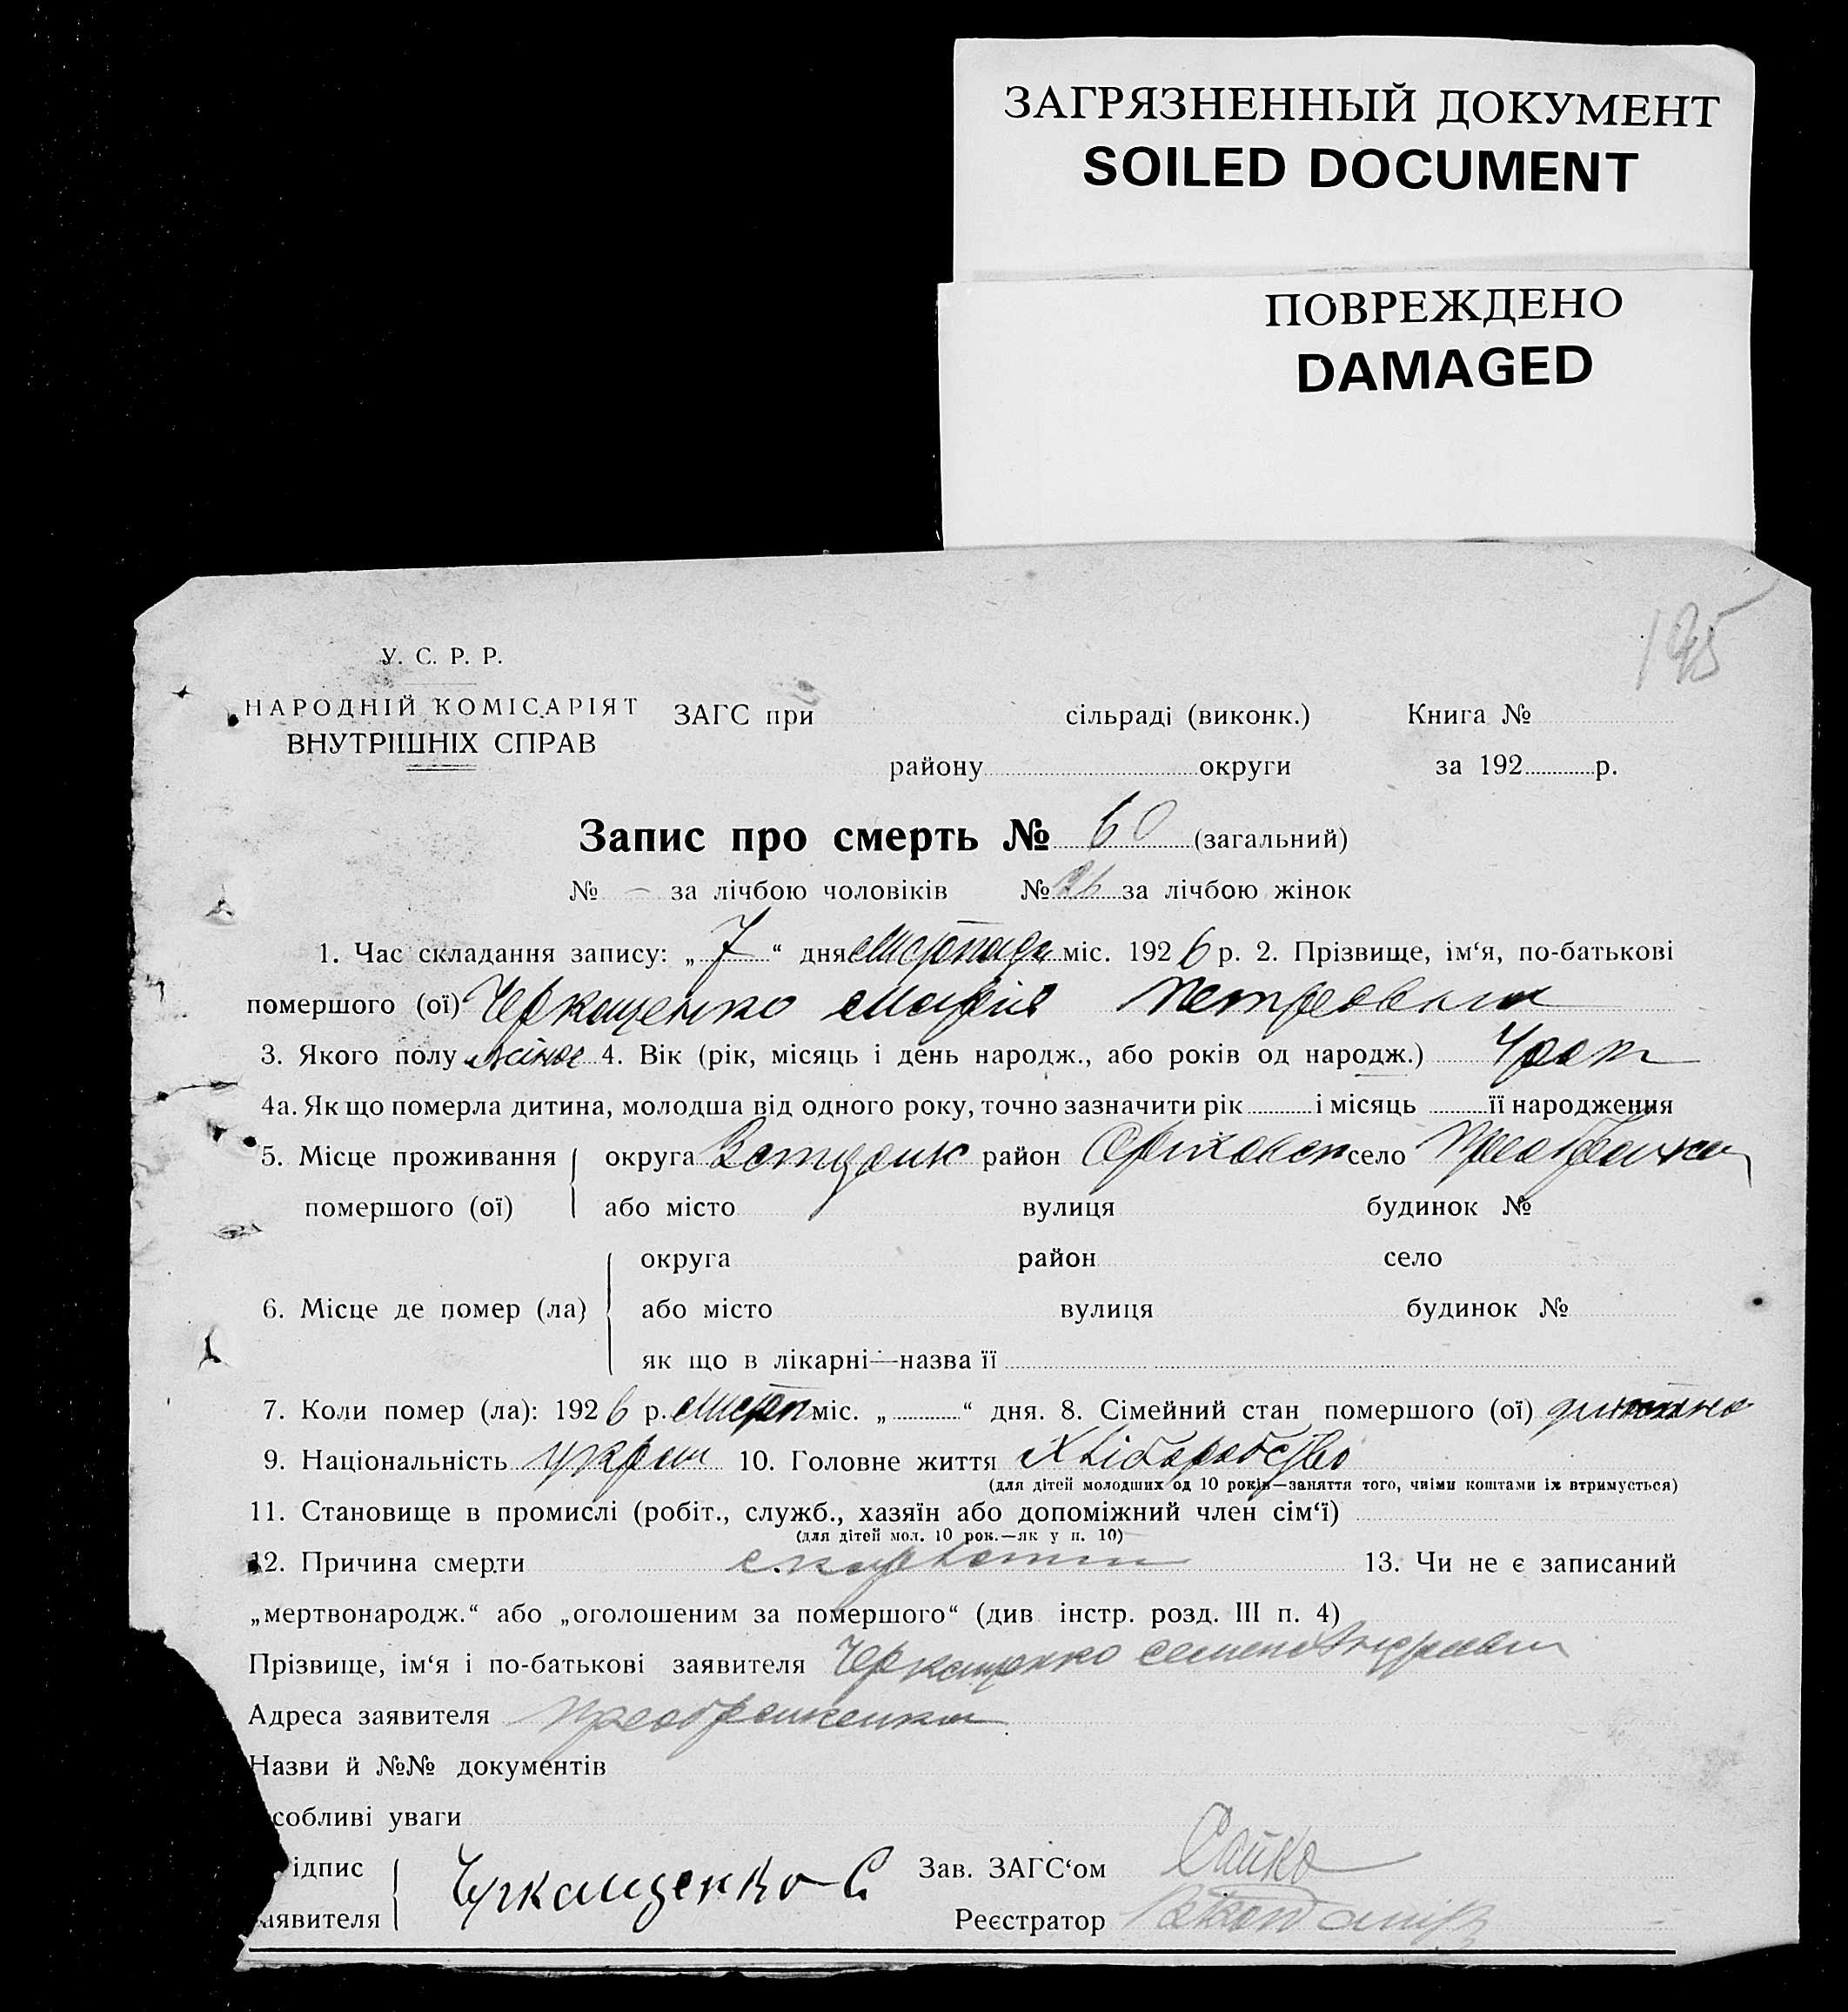 ЗАГРЯЗНЕННЫЙ ДОКУМЕНТ
SOILED DOCUMENT
ПОВРЕЖДЕНО
DAMAGED
195
У. С. Р. Р.
НАРОДНІЙ КОМІСАРІЯТ
ВНУТРІШНІХ СПРАВ
ЗАГС при сільраді (виконк.) Книга №
району округи за 192 р.
Запис про смерть № 60 (загальний)
№ – за лічбою чоловіків № 26 за лічбою жінок
1. Час складання запису: „ 7 “ дня міс. 1926 р. 2. Прізвище, ім‘я, по-батькові
помершого (ої) Черкащенко Марія Петровна
3. Якого полу жіноє 4. Вік (рік, місяць і день народж., або років од народж.)
4а. Як що померла дитина, молодша від одного року, точно зазначити рік і місяць її народження
5. Місце проживання округа район Оріховск село
помершого (ої) або місто вулиця будинок №
округа район село
6. Місце де помер (ла) або місто вулиця будинок №
як що в лікарні—назва її
7. Коли помер (ла): 1926 р. міс. „ “ дня. 8. Сімейний стан помершого (ої) дитина
9. Національність украін 10. Головне життя Хліборобство
(для дітей молодших од 10 років—заняття того, чиїми коштами їх втримується)
11. Становище в промислі (робіт., служб., хазяїн або допоміжний член сім‘ї)
(для дітей мол. 10 рок.—як у п. 10)
12. Причина смерти скарлатин 13. Чи не є записаний
„мертвонародж.“ або „оголошеним за помершого“ (див інстр. розд. III п. 4)
Прізвище, ім‘я і по-батькові заявителя Черкащенко Семен
Адреса заявителя Преображенка
Назви й №№ документів
собливі уваги
ідпис Чуркащенко С Зав. ЗАГС‘ом Сайко
аявителя Реєстратор